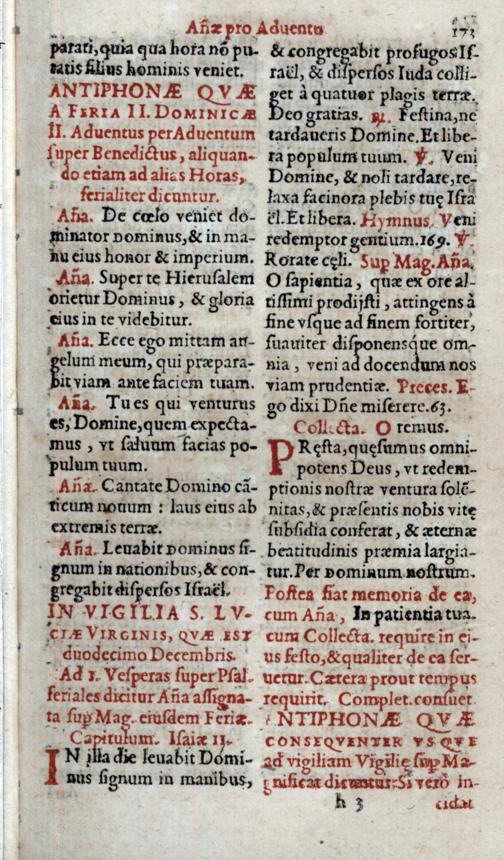 Añæ pro Aduentu. 173
parati, quia qua hora nõ pu-
tatis filius hominis veniet.
ANTIPHONÆ QVÆ
A FERIA II. DOMINICÆ
II. Aduentus per Aduentum
super Benedictus, aliquan-
do etiam ad alias Horas,
ferialiter dicuntur.
Aña. De cœlo veniet do-
minator Dominus, & in ma-
nu eius honor & imperium.
Aña. Super te Hierusalem
orietur Dominus, & gloria
eius in te videbitur.
Aña. Ecce ego mittam an-
gelum meum, qui præpara-
bit viam ante faciem tuam.
Aña. Tu es qui venturus
es, Domine, quem expecta-
mus, vt saluum facias po-
pulum tuum.
Aña. Cantate Domino cã-
ticum nouum : laus eius ab
extremis terræ.
Aña. Leuabit Dominus si-
gnum in nationibus, & con-
gregabit dispersos Israël.
IN VIGILIA S. LV-
CIÆ VIRGINIS, QVÆ EST
duodecimo Decembris.
Ad 1. Vesperas super Psal.
feriales dicitur Aña assigna-
ta sup Mag. eiusdem Feriæ.
Capitulum. Isaiæ 11.
IN illa die leuabit Domi-
nus signum in manibus,
& congregabit profugos Is-
raël, & dispersos Iuda colli-
get à quatuor plagis terræ.
Deo gratias. ℟. Festina, ne
tardaueris Domine. Et libe-
ra populum tuum. ℣. Veni
Domine, & noli tardare, re-
laxa facinora plebis tuę Isra
ël. Et libera. Hymnus. Veni
redemptor gentium. 169. ℣.
Rorate cęli. Sup Mag. Aña.
O sapientia, quæ ex ore al-
tissimi prodijsti, attingens à
fine vsque ad finem fortiter,
suauiter disponensque om-
nia, veni ad docendum nos
viam prudentiæ. Preces. E-
go dixi Dñe miserere. 63.
Collecta. Oremus.
PRęsta, quęsumus omni-
potens Deus, vt redem-
ptionis nostræ ventura solẽ-
nitas, & præsentis nobis vitę
subsidia conferat, & æternæ
beatitudinis præmia largia-
tur. Per Dominum nostrum.
Postea fiat memoria de ea,
cum Aña, In patientia tua.
cum Collecta. require in ei-
us festo, & qualiter de ea ser-
uetur. Cætera prout tempus
requirit. Complet. consuet.
ANTIPHONÆ QVÆ
CONSEQVENTER VSQVE
ad vigiliam Vigilię sup Ma-
gnificat dicuntur. Si verò in-
h 3 cidat